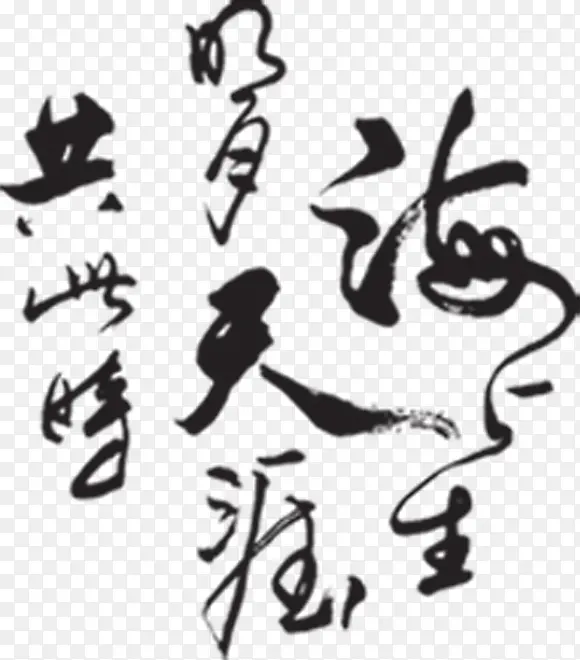 海上生
明月天涯
共此时